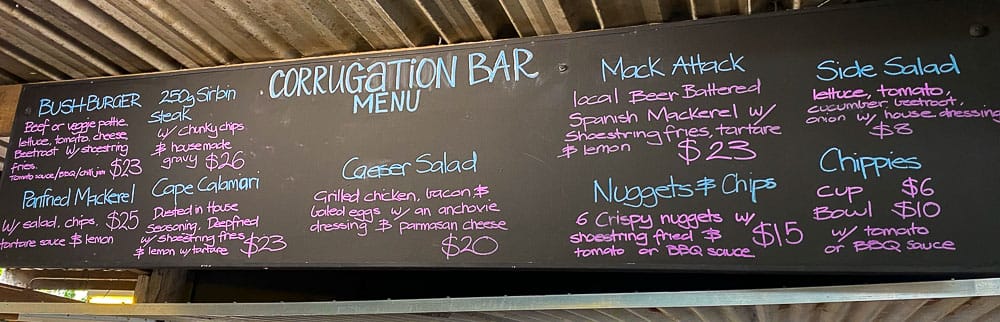 CORRUGATION BAR
MENU
BUSH BURGER
Beef or veggie pattie,
lettuce, tomato, cheese
Beetroot w/ shoestring
fries. $23
Tomato sauce/BBQ/
Panfried Mackerel
w/ salad, chips, $25
tartare sauce & lemon
250g Sirloin
Steak
w/ chunky chips
& house made
gravy $26
Cape Calamari
Dusted in House
Seasoning, Deepfried
w/ shoestring fries
& lemon w/ tartare $23
Caeser Salad
Grilled chicken, bacon &
boled eggs w/ an anchovie
dressing & parmasan cheese
$20
Mack Attack
local Beer Battered
Spanish Mackerel w/
shoestring fries, tartare
& lemon $23
Nuggets & Chips
6 Crispy nuggets w/
shoestring fried &
tomato or BBQ sauce $15
Side Salad
lettuce, tomato,
cucumber, beetroot,
onion w/ house dressing
$8
Chippies
CUP $6
Bowl $10
w/ tomato
or BBQ sauce